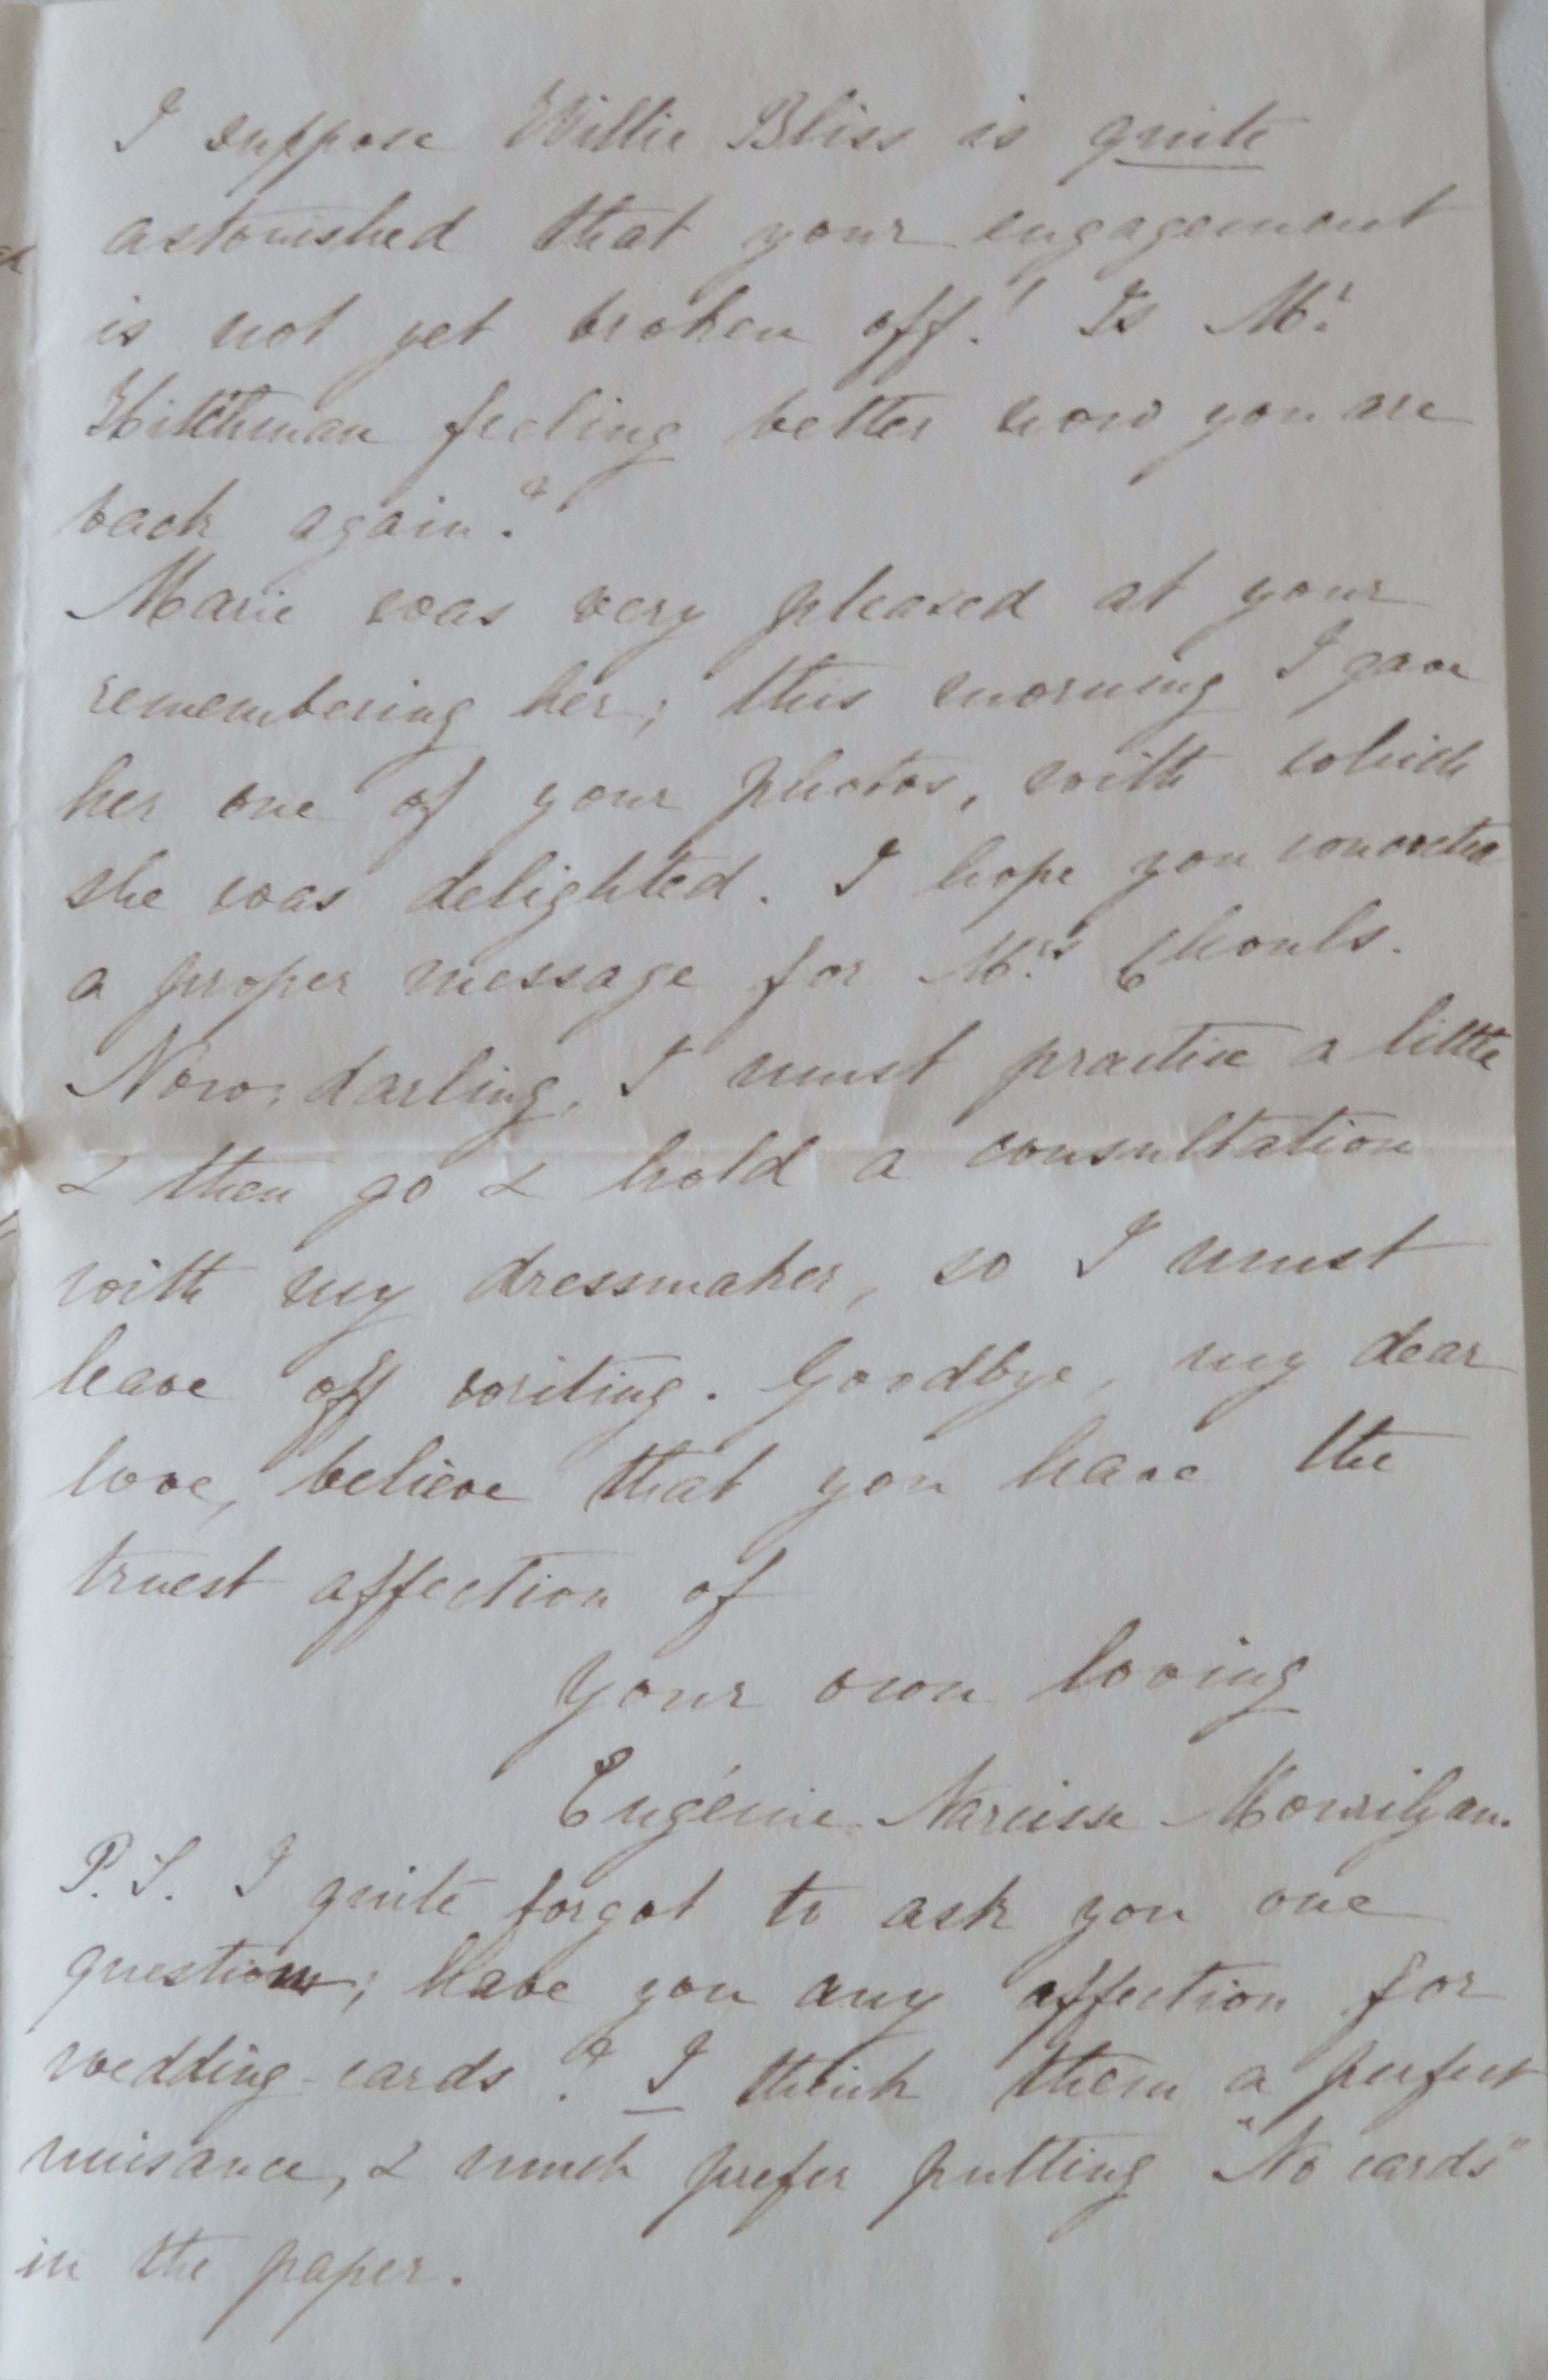 I suppose Willie Bliss is quite
astonished that your engagement
is not yet broken off! Is Mr.
Hitchman feeling better now you are
back again?
Marie was very pleased at your
remembering her; this morning I gave
her one of your photos, with which
she was delighted. I hope you concocted
a proper message for Mrs. Chouls.
Now, darling, I must practise a little
& then go & hold a consultation
with my dressmaker, so I must
leave off writing. Goodbye, my dear
love, believe that you have the
truest affection of
Your own loving
Eugénie Narcisse
P.S. I quite forgot to ask you one
question; have you any affection for
wedding-cards? I think them a perfect
nuisance, & much prefer putting "No cards"
in the paper.